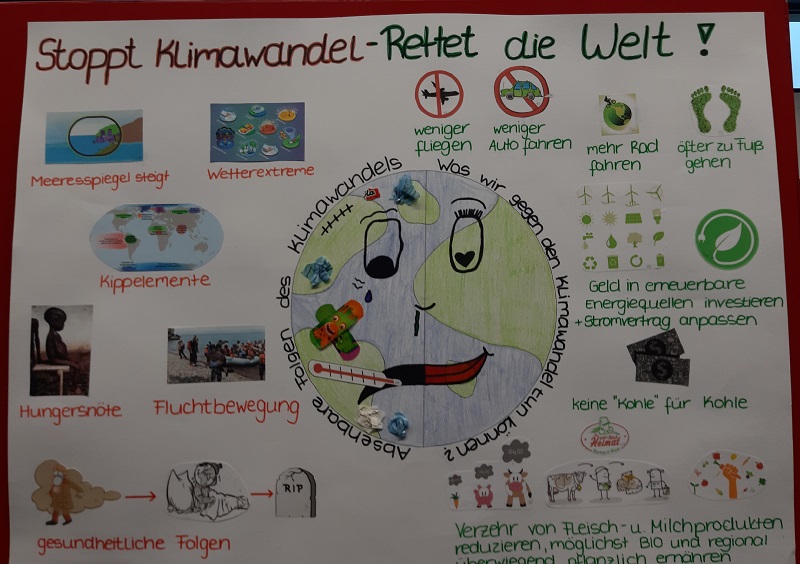 Stoppt Klimawandel - Rettet die Welt !
Meeresspiegel steigt
Wetterextreme
Kippelemente
Hungersnöte
Fluchtbewegung
RIP
gesundheitliche Folgen
Absehbare Folgen des Klimawandels
Was wir gegen den Klimawandel tun können?
weniger
fliegen
weniger
Auto fahren
mehr Rad
fahren
öfter zu Fuß
gehen
Geld in erneuerbare
Energiequellen investieren
+ Stromvertrag anpassen
keine "Kohle" für Kohle
Heimat
Verzehr von Fleisch- u. Milchprodukten
reduzieren, möglichst BIO und regional
überwiegend pflanzlich ernähren